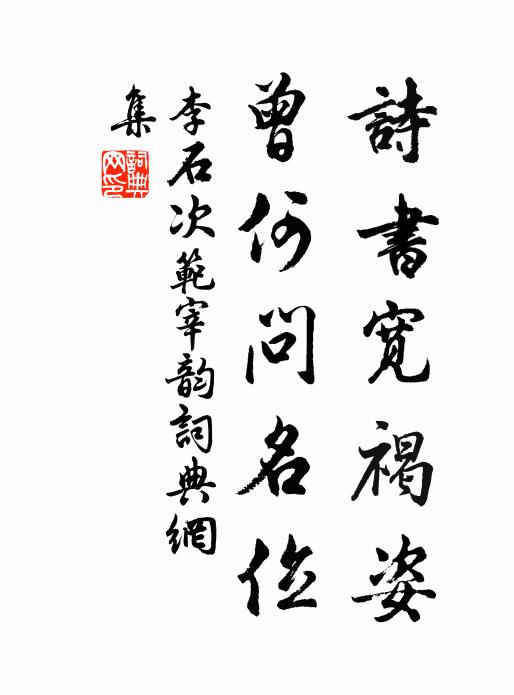 詩書寬褐姿
曾何問名位
李石次範宰韵詞典網
集
詞典網印